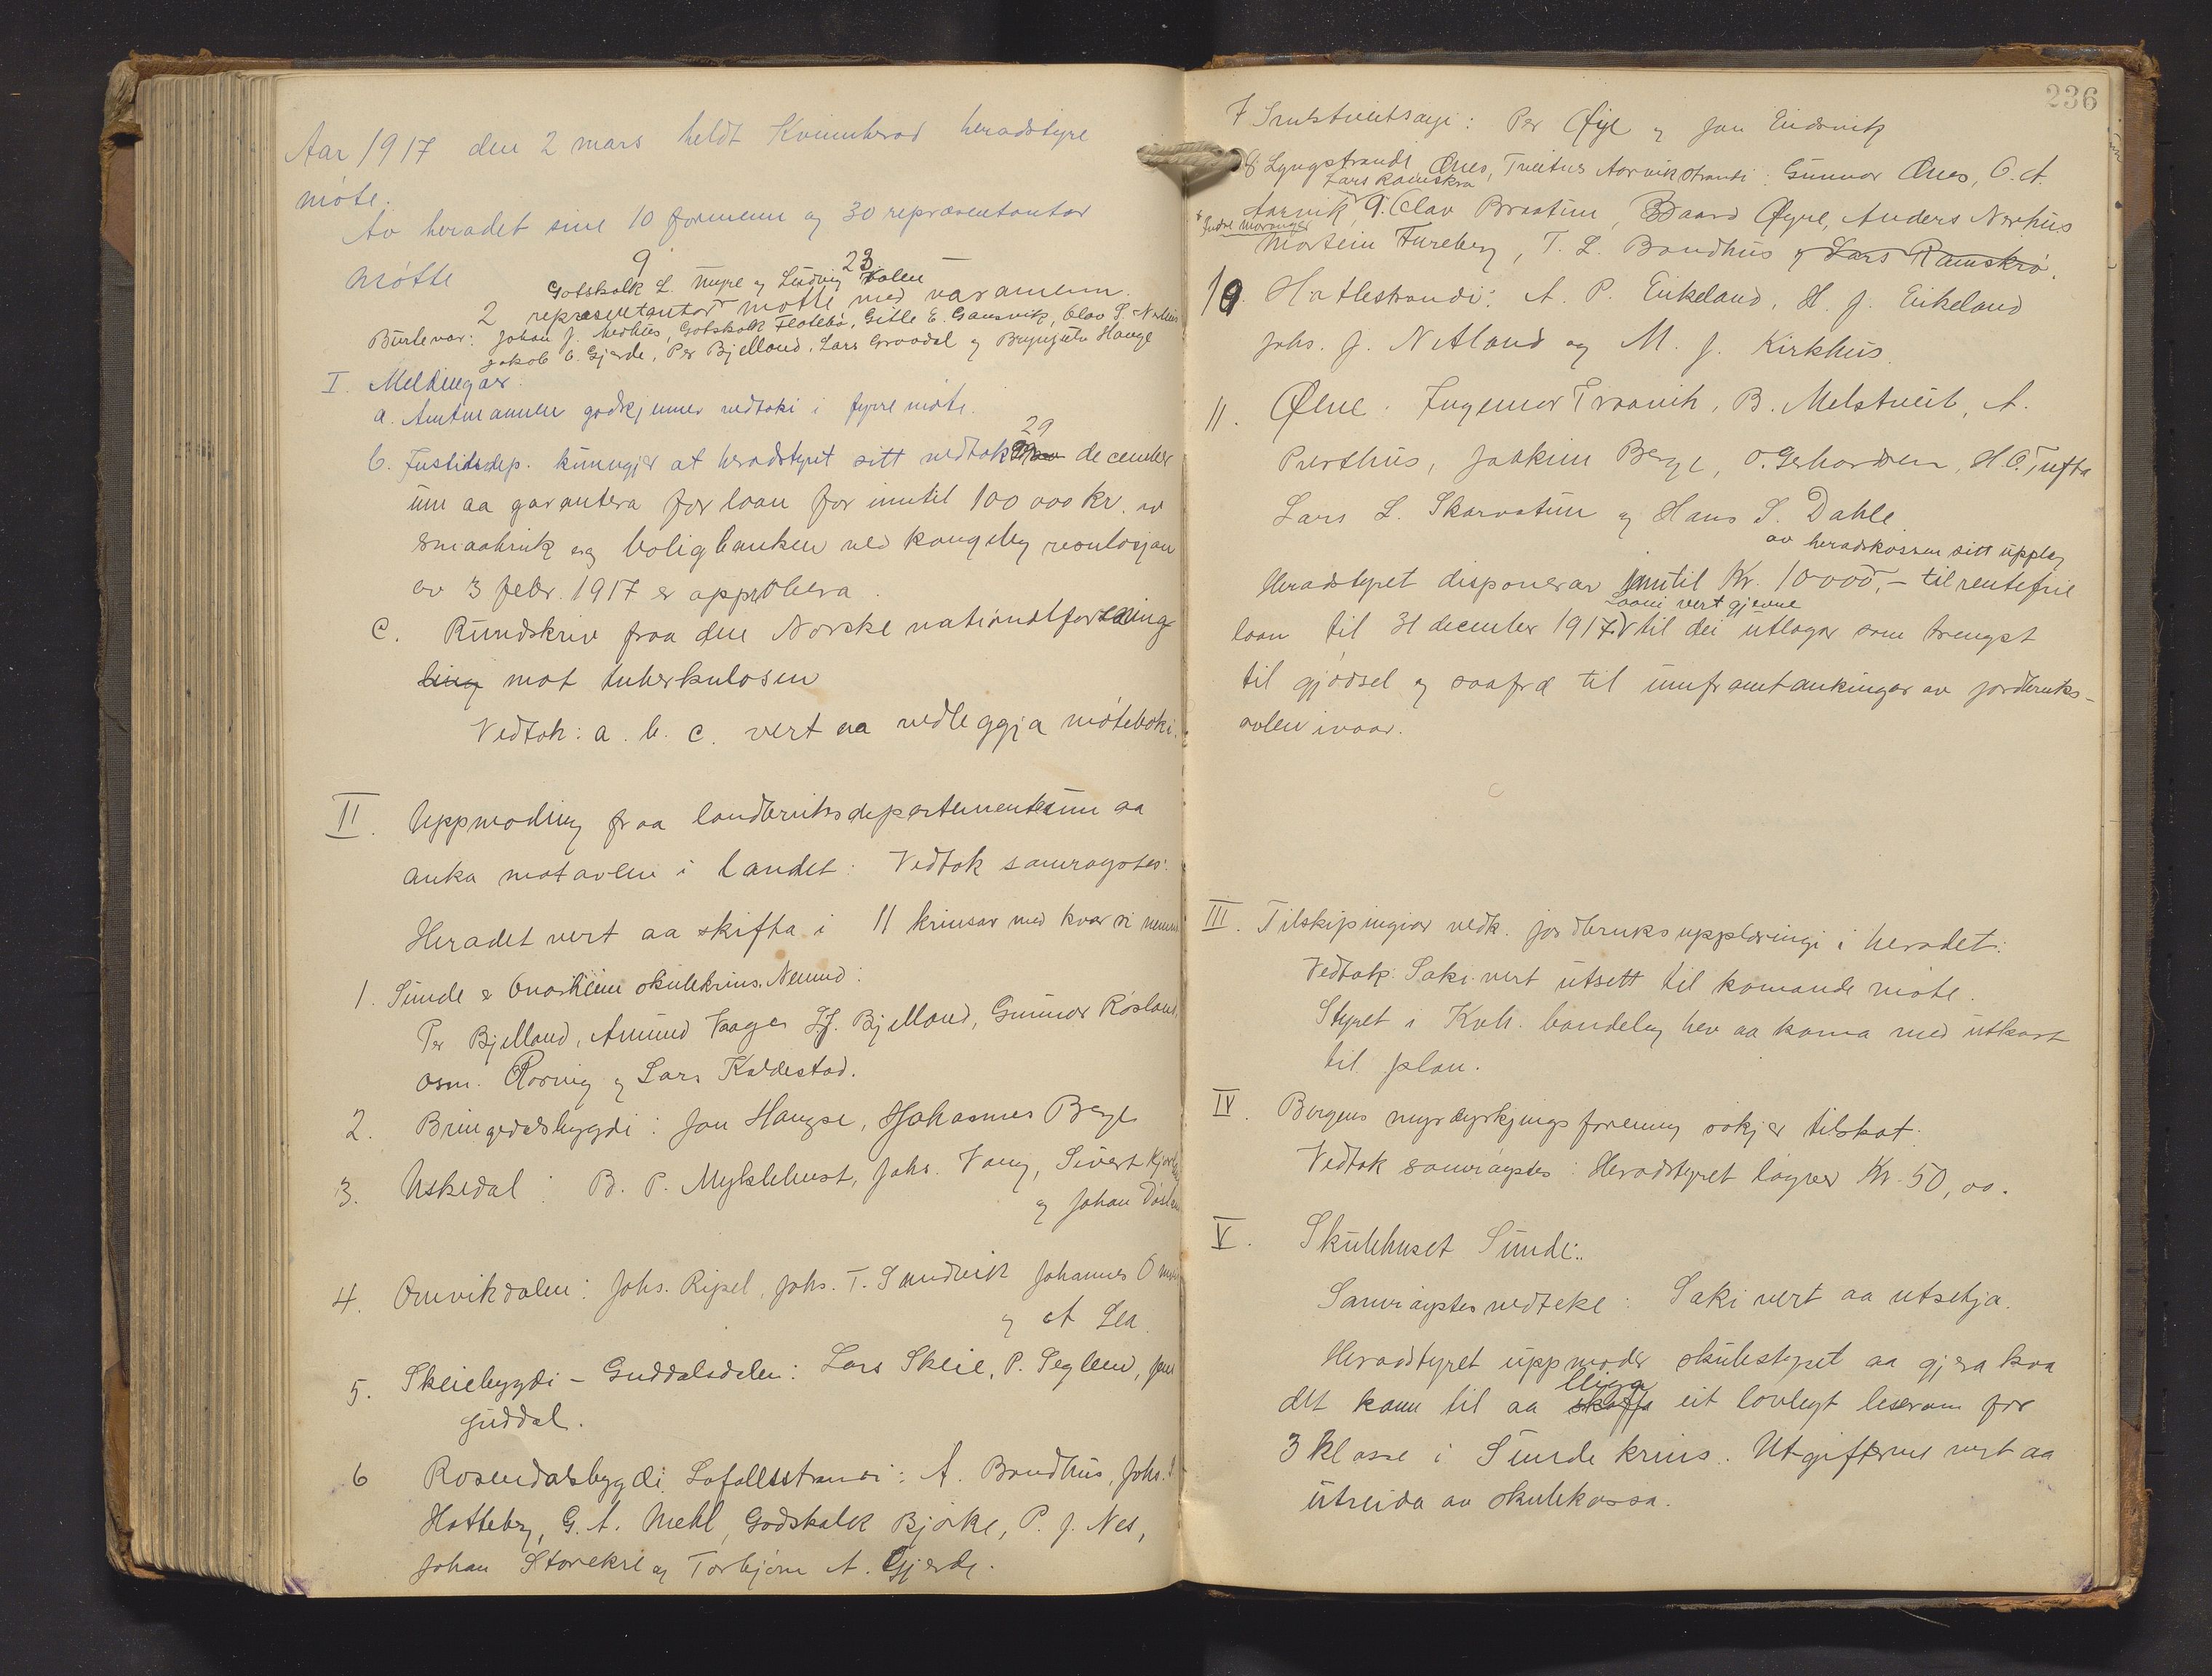 Aar 1917 den 2 mars heldt Kvinnherad heradstyre
møte.
Av heradet sine 10 formenn og 30 representantar
møtte 9 23
Gotskalk L. Myre og Ludvig Valen
2 representantar møtte med varamenn.
Burte var: Johan J. Medhus, Gotskalk Flatebø, Gitle E. Gausvik, Olav S. Nerhus
Jakob O. Gjerde, Per Bjelland, Lars Grovdal og Brynjulv Hauge
I. Meldingar.
a. Amtmannen godkjenner vedtaki i fyrre møte.
29
b. Justisdep. kunngjer at heradstyret sitt vedtak december
um aa garantera for laan for inntil 100 000 kr. av
smaabruk og boligbanken ved kongeleg resolusjon
av 3 febr. 1917 er approbera.
c. Rundskriv fraa den Norske nationalforening
ling mot tuberkulosen
Vedtok: a. b. c. vert aa vedleggja møteboki.
II. Uppmoding fraa landbruksdepartementet um aa
auka matavlen i landet: Vedtok samrøystes:
Heradet vert aa skifta i 11 krinsar med kvar si nemnd
1. Sunde og Onarheim skulekrins. Nemnd:
Per Bjelland, Amund Vaage, J. Bjelland, Gunnar Røsland,
Osm. Røining og Lars Kaldestad.
2. Bringedalsbygdi: Jon Haugse, Johannes Berge
3. Uskedal: B. P. Myklebust, Johs. Vang, Sivert
og Johan
4. Omvikdalen: Johs. Ripel, Johs. T. Sandvik Johannes
og A Lea.
5. Skeiebygdi - Guddalsdalen: Lars Skeie, P. Seglem, Jon
Guddal.
6 Rosendalsbygdi Lofallsstrandi: A. Bondhus, Johs.
Hatteberg, G. A. Mehl, Godskalk Bjørke, P. J. Nes,
Johan Storekre og Torbjørn A. Gjerde.
236
7 Per Øye og Jon Eidsvik
8 Lyngstrandi Ænes, Tveitnes Aarvikstrandi: Gunnar Ænes, O. A.
Lars Ramskra
Aarvik, 9. Olav Braatun, Baard Øyre, Anders Nerhus
Indre Moranger
Mortein Fureberg, T. L. Bondhus og Lars Ramskrø.
10. Hatlestrandi: A. P. Eikeland, H. J. Eikeland
Johs. J. Netland og M. J. Kirkhus.
11. Ølve: Ingemar Traavik, B. Melstveit, A.
Presthus, Joakim Berge, O. Gerhardsen, H. O. Tufta
Lars L. Skarvatun og Hans S. Dahle.
av heradskassen sitt upplag
Heradstyret disponerar inntil Kr. 10000,- til rentefrie
Laani vert gjevne
laan til 31 december 1917. V til dei utlagor som trengst
til gjødsel og saafræ til umframtaukingar av jordbruks-
avlen ivaar.
III. Tilskipingar vedk. jordbruksupplæringi i heradet:
Vedtak: Saki vert utsett til komande møte.
Styret i Kvh. bondelag hev aa koma med utkast
til plan.
IV. Bergens myrdyrkjingsforening søkjer tilskot.
Vedtok samrøystes: Heradstyret løyver Kr. 50,00.
V. Skulehuset Sunde:
Samrøystes vedteke: Saki vert aa utsetja.
Heradstyret uppmoder skulestyret aa gjera kva
leiga
det kann til aa skaffa eit lovlegt leserom for
3 klasse i Sunde krins. Utgiftene vert aa
utreida av skulekassa.